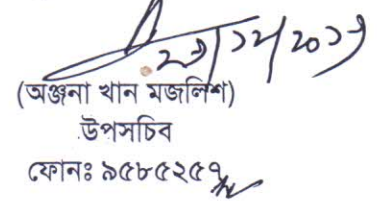 ২১/১২/২০১৭
(অঞ্জনা খান মজলিশ)
উপসচিব
ফোনঃ ৯৫৮৫২৫৭